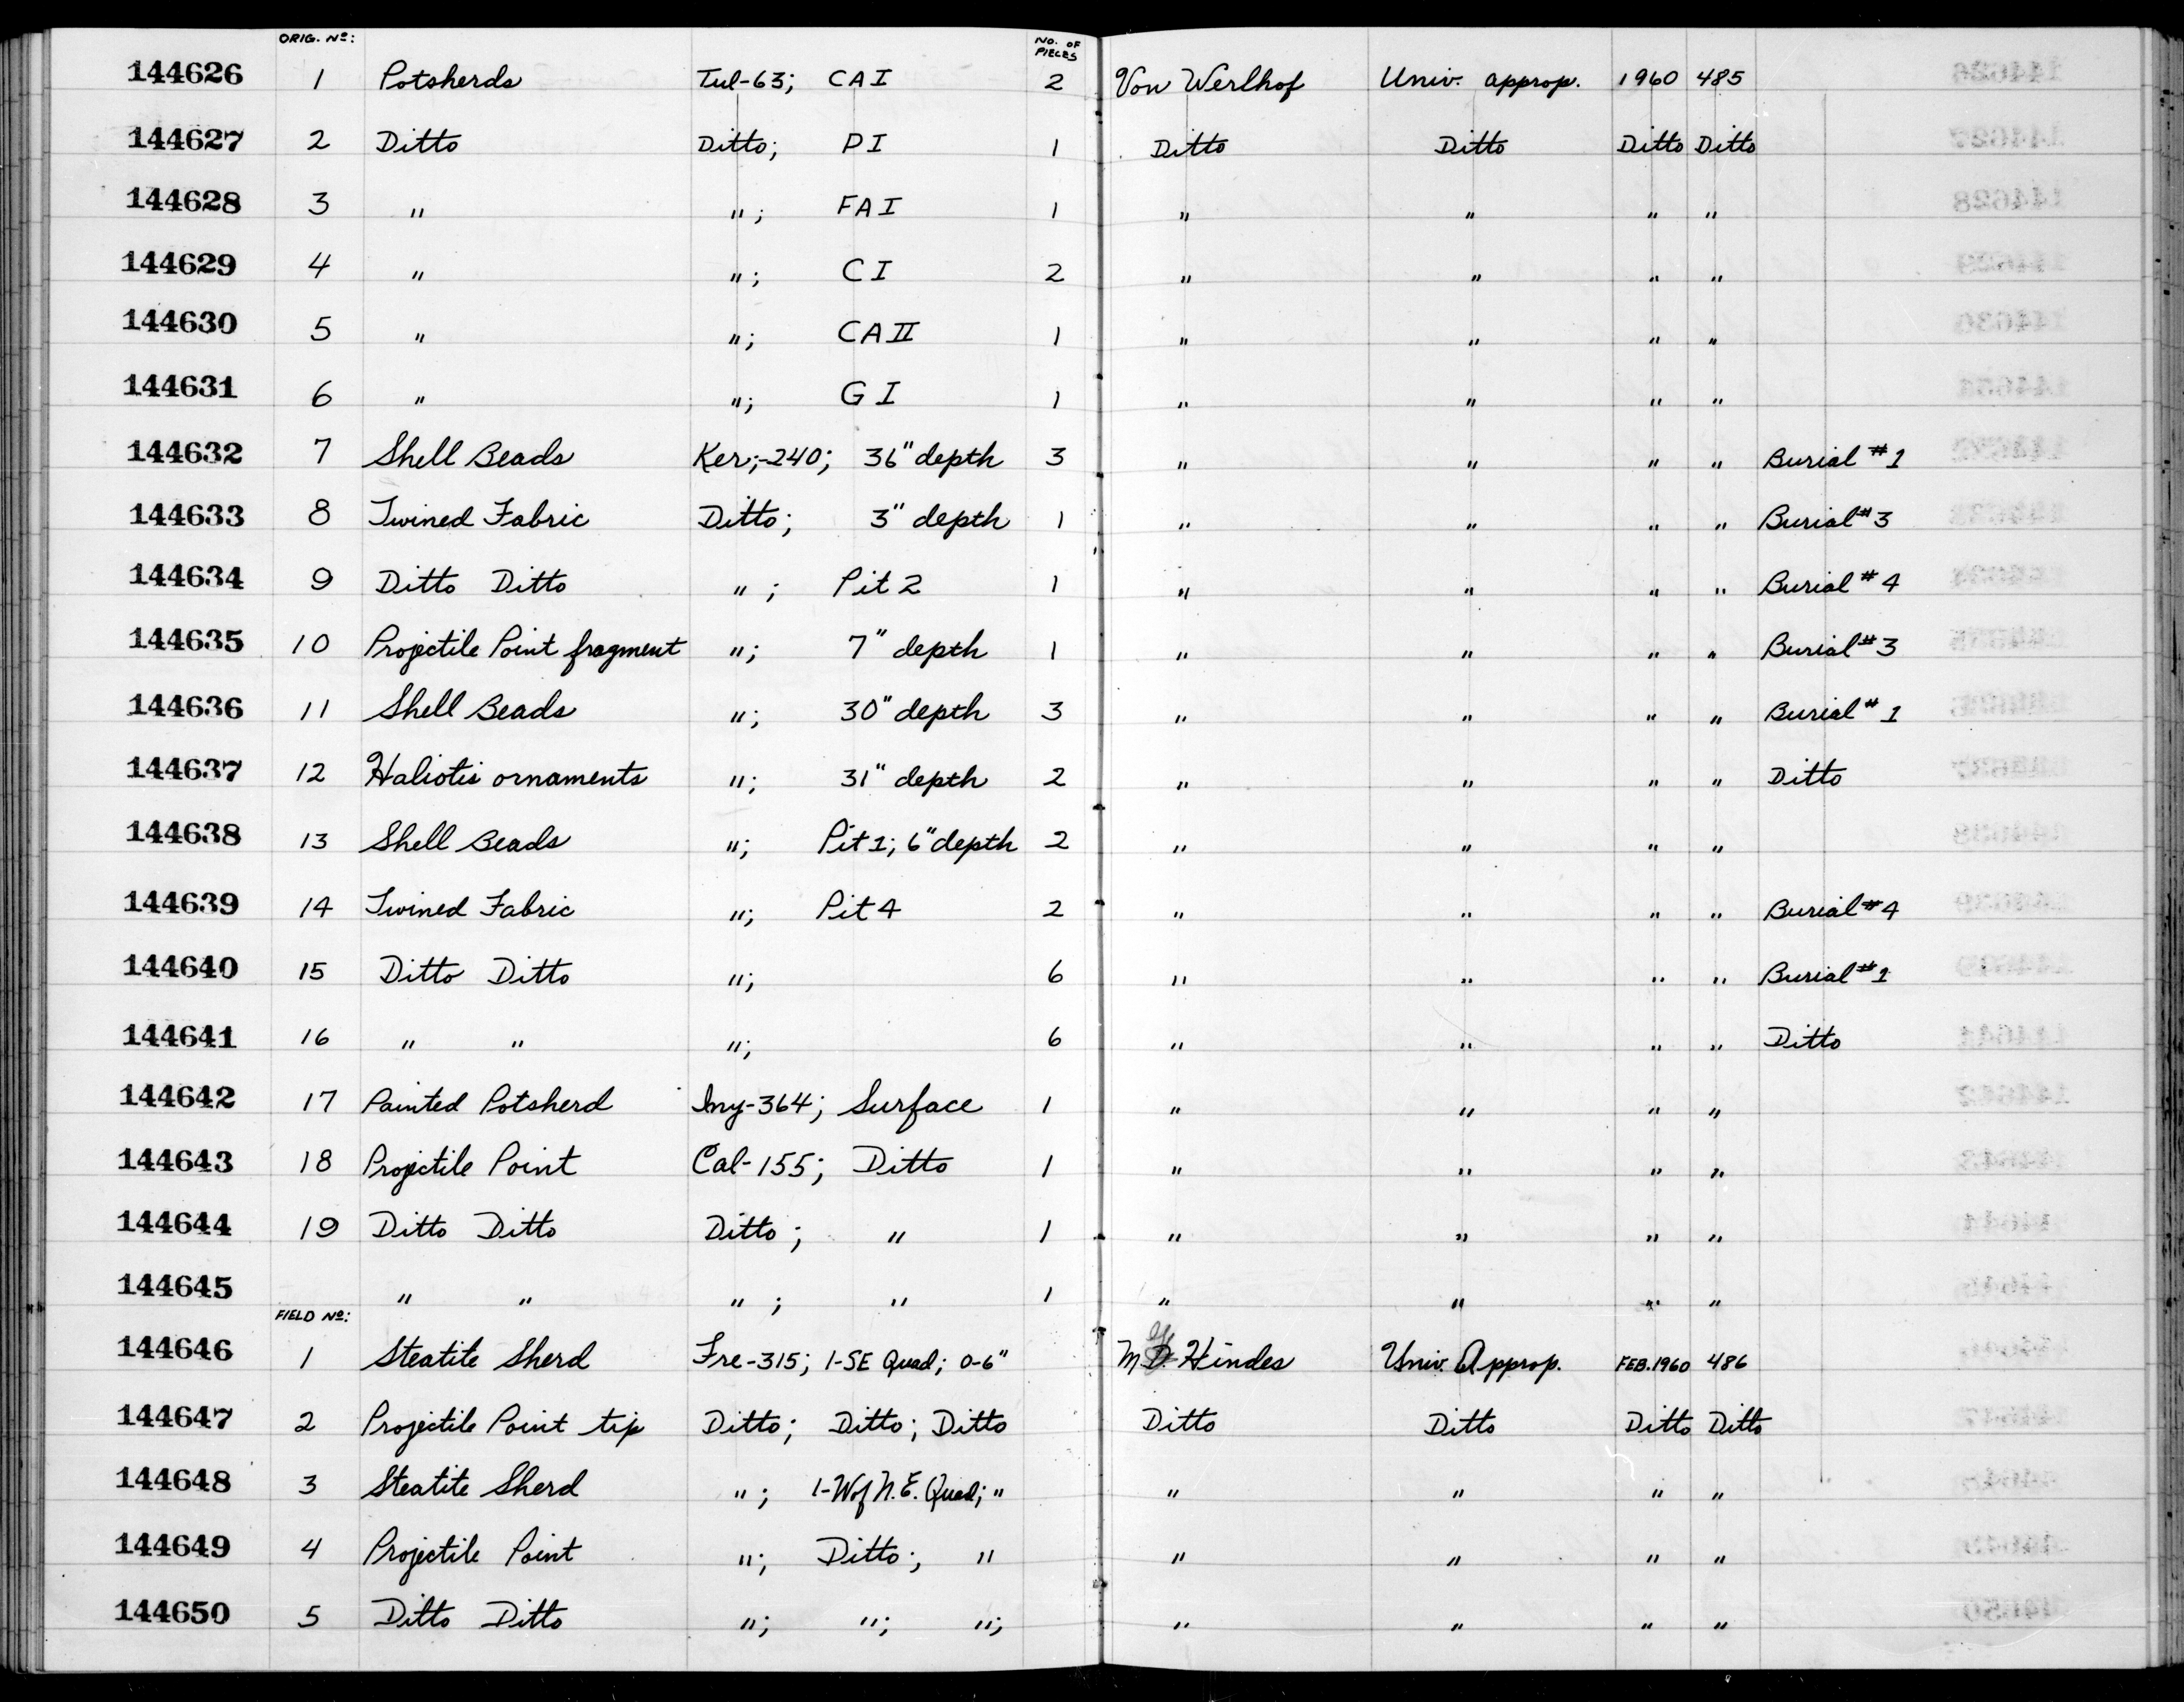 ORIG. Nº: NO. OF PIECES
144626 1 Potsherds Tul-63; CAI 2 Von Werlhof Univ. approp. 1960 485
144627 2 Ditto Ditto; PI 1 Ditto Ditto Ditto Ditto
144628 3 " "; FAI 1 " " " "
144629 4 " "; CI 2 " " " "
144630 5 " "; CAII 1 " " " "
144631 6 " "; GI 1 " " " "
144632 7 Shell Beads Ker;-240; 36" depth 3 " " " " Burial #1
144633 8 Twined Fabric Ditto; 3" depth 1 " " " " Burial #3
144634 9 Ditto Ditto "; Pit 2 1 " " " " Burial #4
144635 10 Projectile Point fragment "; 7" depth 1 " " " " Burial #3
144636 11 Shell Beads "; 30" depth 3 " " " " Burial #1
144637 12 Haliotis ornaments "; 31" depth 2 " " " " Ditto
144638 13 Shell Beads "; Pit 1; 6" depth 2 " " " "
144639 14 Twined Fabric "; Pit 4 2 " " " " Burial #4
144640 15 Ditto Ditto "; 6 " " " " Burial #1
144641 16 " " "; 6 " " " " Ditto
144642 17 Painted Potsherd Iny-364; Surface 1 " " " "
144643 18 Projectile Point Cal-155; Ditto 1 " " " "
144644 19 Ditto Ditto Ditto; " 1 " " " "
144645 " " "; " 1 " " " "
FIELD Nº:
144646 1 Steatite Sherd Fre-315; 1-SE Quad; 0-6" M. Hindes Univ. Approp. FEB. 1960 486
144647 2 Projectile Point tip Ditto; Ditto; Ditto Ditto Ditto Ditto Ditto
144648 3 Steatite Sherd "; 1-W of N.E. Quad; " " " " "
144649 4 Projectile Point "; Ditto; " " " " "
144650 5 Ditto Ditto "; "; "; " " " "